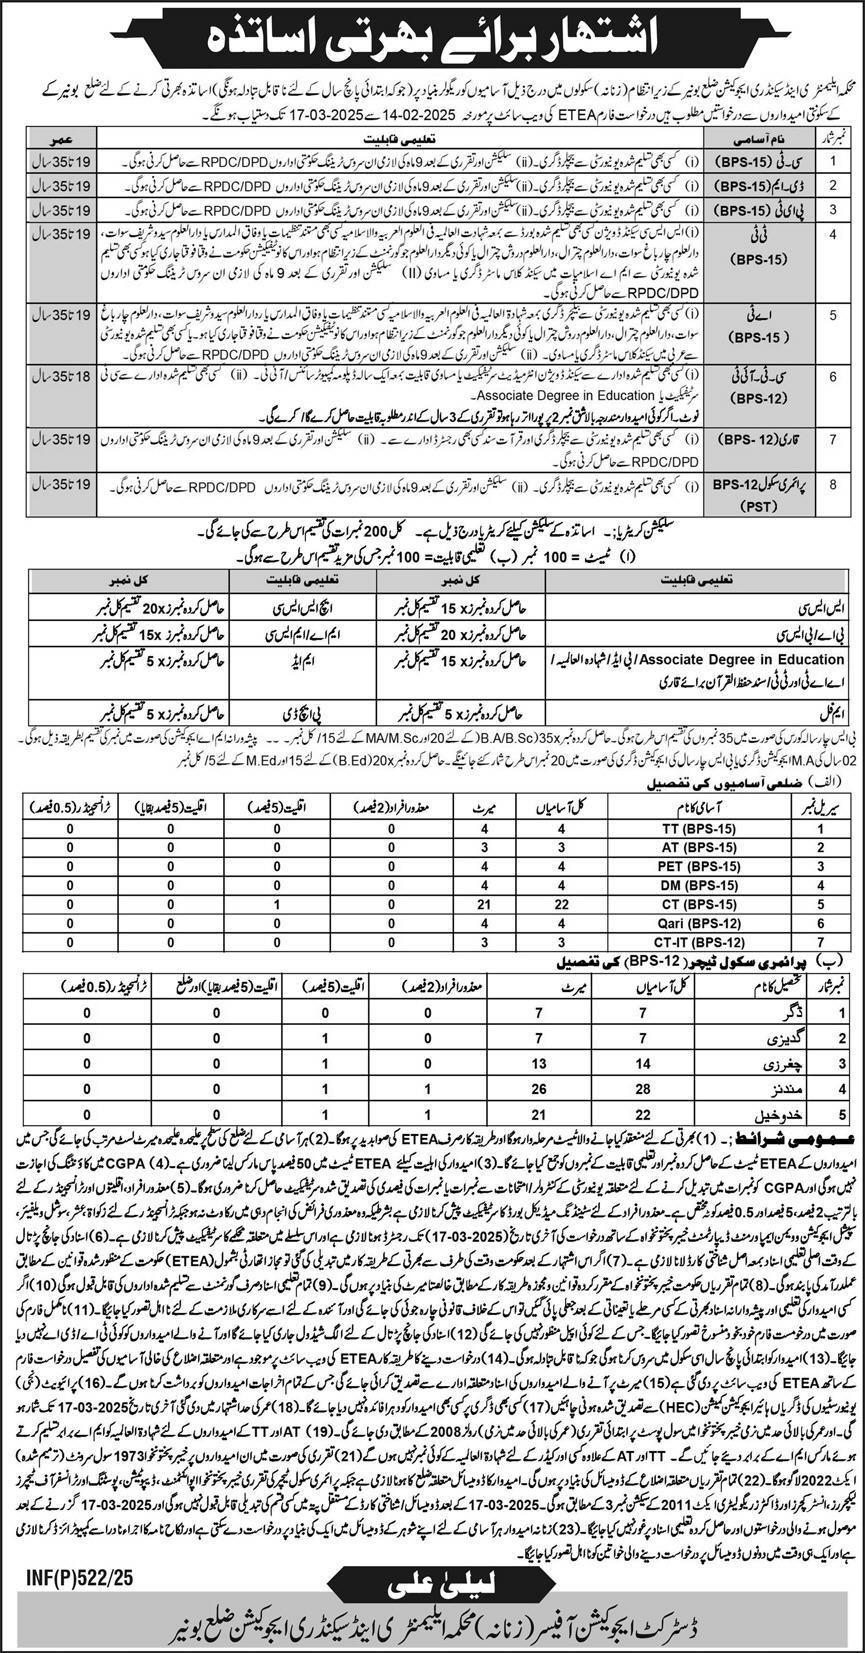 اشتہار برائے بھرتی اساتذہ
محکمہ ایلیمنٹری اینڈ سیکنڈری ایجوکیشن ضلع بونیر کے زیر انتظام (زنانہ) سکولوں میں درج ذیل آسامیوں کو ریگولر بنیاد پر (جو کہ ابتدائی پانچ سال کے لئے ناقابل تبادلہ ہونگی) اساتذہ بھرتی کرنے کے لئے ضلع بونیر کے
کے سکونتی امیدواروں سے درخواستیں مطلوب ہیں درخواست فارم ETEA کی ویب سائٹ پر مورخہ 14-02-2025 سے 17-03-2025 تک دستیاب ہونگے۔
نمبر شمار نام آسامی تعلیمی قابلیت عمر
1 سی۔ٹی (BPS-15) (i) کسی بھی تسلیم شدہ یونیورسٹی سے بیچلر ڈگری۔ (ii) سلیکشن اور تقرری کے بعد 9 ماہ کی لازمی ان سروس ٹریننگ حکومتی اداروں RPDC/DPD سے حاصل کرنی ہوگی۔ 19 تا 35 سال
2 ڈی۔ایم (BPS-15) (i) کسی بھی تسلیم شدہ یونیورسٹی سے بیچلر ڈگری۔ (ii) سلیکشن اور تقرری کے بعد 9 ماہ کی لازمی ان سروس ٹریننگ حکومتی اداروں RPDC/DPD سے حاصل کرنی ہوگی۔ 19 تا 35 سال
3 پی ای ٹی (BPS-15) (i) کسی بھی تسلیم شدہ یونیورسٹی سے بیچلر ڈگری۔ (ii) سلیکشن اور تقرری کے بعد 9 ماہ کی لازمی ان سروس ٹریننگ حکومتی اداروں RPDC/DPD سے حاصل کرنی ہوگی۔ 19 تا 35 سال
4 ٹی ٹی (BPS-15) (i) ایس ایس سی سیکنڈ ڈویژن کسی بھی تسلیم شدہ بورڈ سے بمعہ شہادۃ العالمیہ فی العلوم العربیہ والاسلامیہ کسی بھی مستند تنظیمات یا وفاق المدارس یا دارالعلوم سیدو شریف سوات، 19 تا 35 سال
دارالعلوم چار باغ سوات، دارالعلوم چترال، دارالعلوم دروش چترال یا کوئی دیگر دارالعلوم جو گورنمنٹ کے زیر انتظام ہو اور اس کا نوٹیفکیشن حکومت نے وقتاً فوقتاً جاری کیا ہو کسی بھی تسلیم
شدہ یونیورسٹی سے ایم اے اسلامیات میں سیکنڈ کلاس ماسٹر ڈگری یا مساوی (II) سلیکشن اور تقرری کے بعد 9 ماہ کی لازمی ان سروس ٹریننگ حکومتی اداروں
RPDC/DPD سے حاصل کرنی ہوگی۔
5 اے ٹی (BPS-15) (i) کسی بھی تسلیم شدہ یونیورسٹی سے بیچلر ڈگری بمعہ شہادۃ العالمیہ فی العلوم العربیہ والاسلامیہ کسی مستند تنظیمات یا وفاق المدارس یا دارالعلوم سیدو شریف سوات، دارالعلوم چار باغ 19 تا 35 سال
سوات، دارالعلوم چترال، دارالعلوم دروش چترال یا کوئی دیگر دارالعلوم جو گورنمنٹ کے زیر انتظام ہو اور اس کا نوٹیفکیشن حکومت نے وقتاً فوقتاً جاری کیا ہو۔ یا کسی بھی تسلیم شدہ یونیورسٹی
سے عربی میں سیکنڈ کلاس ماسٹر ڈگری یا مساوی۔ (ii) سلیکشن اور تقرری کے بعد 9 ماہ کی لازمی ان سروس ٹریننگ حکومتی اداروں RPDC/DPD سے حاصل کرنی ہوگی۔
6 سی۔ٹی۔آئی ٹی (BPS-12) (i) کسی بھی تسلیم شدہ ادارے سے سیکنڈ ڈویژن انٹرمیڈیٹ سرٹیفکیٹ یا مساوی قابلیت بمعہ ایک سالہ ڈپلومہ کمپیوٹر سائنس/آئی ٹی۔ (ii) کسی بھی تسلیم شدہ ادارے سے سی ٹی 18 تا 35 سال
سرٹیفکیٹ یا Associate Degree in Education۔
نوٹ۔ اگر کوئی امیدوار مندرجہ بالا شق نمبر 2 پر پورا اتر رہا ہو تو تقرری کے 3 سال کے اندر مطلوبہ قابلیت حاصل کرے گا/کرے گی۔
7 قاری (BPS-12) (i) کسی بھی تسلیم شدہ یونیورسٹی سے بیچلر ڈگری اور قرآت سند کسی بھی رجسٹرڈ ادارے سے۔ (ii) سلیکشن اور تقرری کے بعد 9 ماہ کی لازمی ان سروس ٹریننگ حکومتی اداروں 19 تا 35 سال
RPDC/DPD سے حاصل کرنی ہوگی۔
8 پرائمری سکول BPS-12 (PST) (i) کسی بھی تسلیم شدہ یونیورسٹی سے بیچلر ڈگری۔ (ii) سلیکشن اور تقرری کے بعد 9 ماہ کی لازمی ان سروس ٹریننگ حکومتی اداروں RPDC/DPD سے حاصل کرنی ہوگی۔ 19 تا 35 سال
سلیکشن کریٹریا:۔ اساتذہ کے سلیکشن کیلئے کریٹریا درج ذیل ہے۔ کل 200 نمبرات کی تقسیم اس طرح سے کی جائے گی۔
(ا) ٹیسٹ = 100 نمبر (ب) تعلیمی قابلیت = 100 نمبر جس کی مزید تقسیم اس طرح سے ہوگی۔
تعلیمی قابلیت کل نمبر تعلیمی قابلیت کل نمبر
ایس ایس سی حاصل کردہ نمبرز x 15 تقسیم کل نمبر ایچ ایس ایس سی حاصل کردہ نمبرز x 20 تقسیم کل نمبر
بی اے/بی ایس سی حاصل کردہ نمبرز x 20 تقسیم کل نمبر ایم اے/ایم ایس سی حاصل کردہ نمبرز x 15 تقسیم کل نمبر
Associate Degree in Education/بی ایڈ/شہادہ العالمیہ/ حاصل کردہ نمبرز x 15 تقسیم کل نمبر ایم ایڈ حاصل کردہ نمبرز x 5 تقسیم کل نمبر
اے اے ٹی اور ٹی ٹی/سند حفظ القرآن برائے قاری
ایم فل حاصل کردہ نمبرز x 5 تقسیم کل نمبر پی ایچ ڈی حاصل کردہ نمبرز x 5 تقسیم کل نمبر
بی ایس چار سالہ کورس کی صورت میں 35 نمبروں کی تقسیم اس طرح ہوگی۔ حاصل کردہ نمبر x35 (B.A/B.Sc کے لئے 20 اور MA/M.Sc کے لئے 15)/کل نمبر۔ --- پیشہ ورانہ ایم اے ایجوکیشن کی صورت میں نمبر کی تقسیم بطریقہ ذیل ہوگی۔
02 سال کی M.A ایجوکیشن ڈگری یا بی ایس چار سال کی ایجوکیشن ڈگری کی صورت میں 20 نمبر اس طرح شمار کئے جائینگے۔ حاصل کردہ نمبر x20 (B.Ed کے لئے 15 اور M.Ed کے لئے 5)/کل نمبر
(الف) ضلعی آسامیوں کی تفصیل
سیریل نمبر آسامی کا نام کل آسامیاں میرٹ معذور افراد (2 فیصد) اقلیت (5 فیصد) اقلیت (5 فیصد بقایا) ٹرانسجینڈر (0.5 فیصد)
1 TT (BPS-15) 4 4 0 0 0 0
2 AT (BPS-15) 3 3 0 0 0 0
3 PET (BPS-15) 4 4 0 0 0 0
4 DM (BPS-15) 4 4 0 0 0 0
5 CT (BPS-15) 22 21 0 1 0 0
6 Qari (BPS-12) 4 4 0 0 0 0
7 CT-IT (BPS-12) 3 3 0 0 0 0
(ب) پرائمری سکول ٹیچر (BPS-12) کی تفصیل
نمبر شمار تحصیل کا نام کل آسامیاں میرٹ معذور افراد (2 فیصد) اقلیت (5 فیصد) اقلیت (5 فیصد بقایا) اور ضلع ٹرانسجینڈر (0.5 فیصد)
1 ڈگر 7 7 0 0 0 0
2 گدیزی 7 7 0 1 0 0
3 چغرزی 14 13 0 1 0 0
4 مندنڑ 28 26 1 1 0 0
5 خدوخیل 22 21 1 1 0 0
عمومی شرائط:۔ (1) بھرتی کے لئے منعقد کیا جانے والا ٹیسٹ مرحلہ وار ہوگا اور طریقہ کار صرف ETEA کی صوابدید پر ہوگا۔ (2) ہر آسامی کے لئے ضلع کی سطح پر علیحدہ علیحدہ میرٹ لسٹ مرتب کی جائے گی جس میں
امیدواروں کے ETEA ٹیسٹ کے حاصل کردہ نمبر اور تعلیمی قابلیت کے نمبروں کو جمع کیا جائے گا۔ (3) امیدوار کی اہلیت کیلئے ETEA ٹیسٹ میں 50 فیصد پاس مارکس لینا ضروری ہے۔ (4) CGPA میں کاؤنٹنگ کی اجازت
نہیں ہوگی اور CGPA کو نمبرات میں تبدیل کرنے کے لئے متعلقہ یونیورسٹی کے کنٹرولر امتحانات سے نمبرات یا نمبرات کی فیصدی کی تصدیق شدہ سرٹیفکیٹ حاصل کرنا ضروری ہوگا۔ (5) معذور افراد، اقلیتوں اور ٹرانسجینڈر کے لئے
بالترتیب 2 فیصد، 5 فیصد اور 0.5 فیصد کوٹہ مختص ہے۔ معذور افراد کے لئے سٹینڈنگ میڈیکل بورڈ کا سرٹیفکیٹ پیش کرنا لازمی ہے بشرطیکہ وہ معذوری فرائض کی انجام دہی میں رکاوٹ نہ ہو جبکہ ٹرانسجینڈر کے لئے زکواۃ، عشر، سوشل ویلفیئر،
سپیشل ایجوکیشن و ویمن ایمپاورمنٹ ڈیپارٹمنٹ خیبر پختونخواہ کے ساتھ درخواست کی آخری تاریخ (17-03-2025) تک رجسٹرڈ ہونا لازمی ہے اور اس سلسلے میں متعلقہ محکمے کا سرٹیفکیٹ پیش کرنا ہوگا۔ (6) اسناد کی جانچ پڑتال
کے وقت اصلی تعلیمی اسناد بمعہ اصل شناختی کارڈ لانا لازمی ہے۔ (7) اگر اس اشتہار کے بعد حکومت وقت کی طرف سے بھرتی کے طریقہ کار میں تبدیلی کی گئی تو مجاز اتھارٹی بشمول (ETEA) حکومت کے منظور شدہ قوانین کے مطابق
عملدرآمد کی پابند ہوگی۔ (8) تمام تقرریاں حکومت خیبر پختونخواہ کے مقرر کردہ قوانین و مجوزہ طریقہ کار کے مطابق خالصتاً میرٹ کی بنیاد پر ہوں گی۔ (9) تمام تعلیمی اسناد صرف گورنمنٹ سے تسلیم شدہ اداروں کی قابل قبول ہوگی (10) اگر
کسی امیدوار کی تعلیمی اور پیشہ ورانہ اسناد بھرتی کے کسی مرحلے یا تعیناتی کے بعد جعلی پائی گئیں تو اس کے خلاف قانونی چارہ جوئی کی جائے گی اور آئندہ کے لئے اسے سرکاری ملازمت کے لئے نااہل تصور کیا جائیگا۔ (11) نامکمل فارم کی
صورت میں درخواست فارم خودبخود منسوخ تصور کیا جائیگا۔ جس کے لئے کوئی اپیل منظور نہیں کی جائے گی (12) اسناد کی جانچ پڑتال کے لئے الگ شیڈول جاری کیا جائے گا اور آنے والے امیدواروں کو کوئی ٹی اے/ڈی اے نہیں دیا
جائیگا۔ (13) امیدوار کو ابتدائی پانچ سال اسی سکول میں سروس کرنا ہوگی جو کہ ناقابل تبادلہ ہوگی۔ (14) درخواست دینے کا طریقہ کار ETEA کی ویب سائٹ پر موجود ہے اور متعلقہ اضلاع کی خالی آسامیوں کی تفصیل درخواست فارم
کے ساتھ ETEA کی ویب سائٹ پر دی گئی ہے (15) میرٹ پر آنے والے امیدواروں کی اسناد متعلقہ ادارے سے تصدیق کرائی جائے گی جس کے تمام اخراجات امیدواروں کو برداشت کرنا ہوں گے۔ (16) پرائیویٹ (نجی)
یونیورسٹیوں کی ڈگریاں ہائیر ایجوکیشن کمیشن (HEC) سے تصدیق شدہ ہونی چاہئیں (17) کسی بھی ڈگری پر کسی بھی امیدوار کو دہرا فائدہ نہیں دیا جائے گا۔ (18) عمر کی حد اشتہار میں دی گئی آخری تاریخ 17-03-2025 تک شمار ہو
گی۔ اور عمر کی بالائی حد میں نرمی خیبر پختونخوا میں سول پوسٹ پر ابتدائی تقرری (عمر کی بالائی حد میں نرمی) رولز 2008 کے مطابق دی جائے گی۔ (19) AT اور TT کے امیدواروں کے لئے شہادۃ العالمیہ کو ایم اے برابر تسلیم کرتے
ہوئے مارکس ایم اے کے برابر دیئے جائیں گے۔ TT اور AT کے علاوہ کسی اور کیڈر کے لئے شہادۃ العالمیہ کے کوئی نمبر نہیں ہوں گے (21) تقرری کی صورت میں ان امیدواروں پر خیبر پختونخوا 1973 سول سرونٹ (ترمیم شدہ)
ایکٹ 2022 لاگو ہوگا۔ (22) تمام تقرریاں متعلقہ اضلاع کے ڈومیسائل کی بنیاد پر ہوں گی۔ امیدوار کا ڈومیسائل متعلقہ ضلع کا ہونا لازمی ہے جبکہ پرائمری سکول ٹیچر کی تقرری خیبر پختونخوا اپوائنٹمنٹ، ڈیپوٹیشن، پوسٹنگ اور ٹرانسفر آف ٹیچرز
لیکچررز، انسٹرکچرز اور ڈاکٹرز ریگولیٹری ایکٹ 2011 کے سیکشن نمبر 3 کے مطابق ہوگی۔ 17-03-2025 کے بعد ڈومیسائل/شناختی کارڈ کے مستقل پتہ میں کسی قسم کی تبدیلی قابل قبول نہیں ہوگی اور 17-03-2025 گزرنے کے بعد
موصول ہونے والی درخواستوں اور حاصل کردہ تعلیمی اسناد پر غور نہیں کیا جائیگا۔ (23) زنانہ امیدوار ہر آسامی کے لئے اپنے شوہر کے ڈومیسائل میں ایک کی بنیاد پر درخواست دے سکتی ہے اور نکاح نامہ کا اجراء نادرا سے کمپیوٹرائزڈ کرنا لازمی
ہے اور ایک ہی وقت میں دونوں ڈومیسائل پر درخواست دینے والی خواتین کو نااہل تصور کیا جائیگا۔
INF(P)522/25
لیلیٰ علی
ڈسٹرکٹ ایجوکیشن آفیسر (زنانہ) محکمہ ایلیمنٹری اینڈ سیکنڈری ایجوکیشن ضلع بونیر